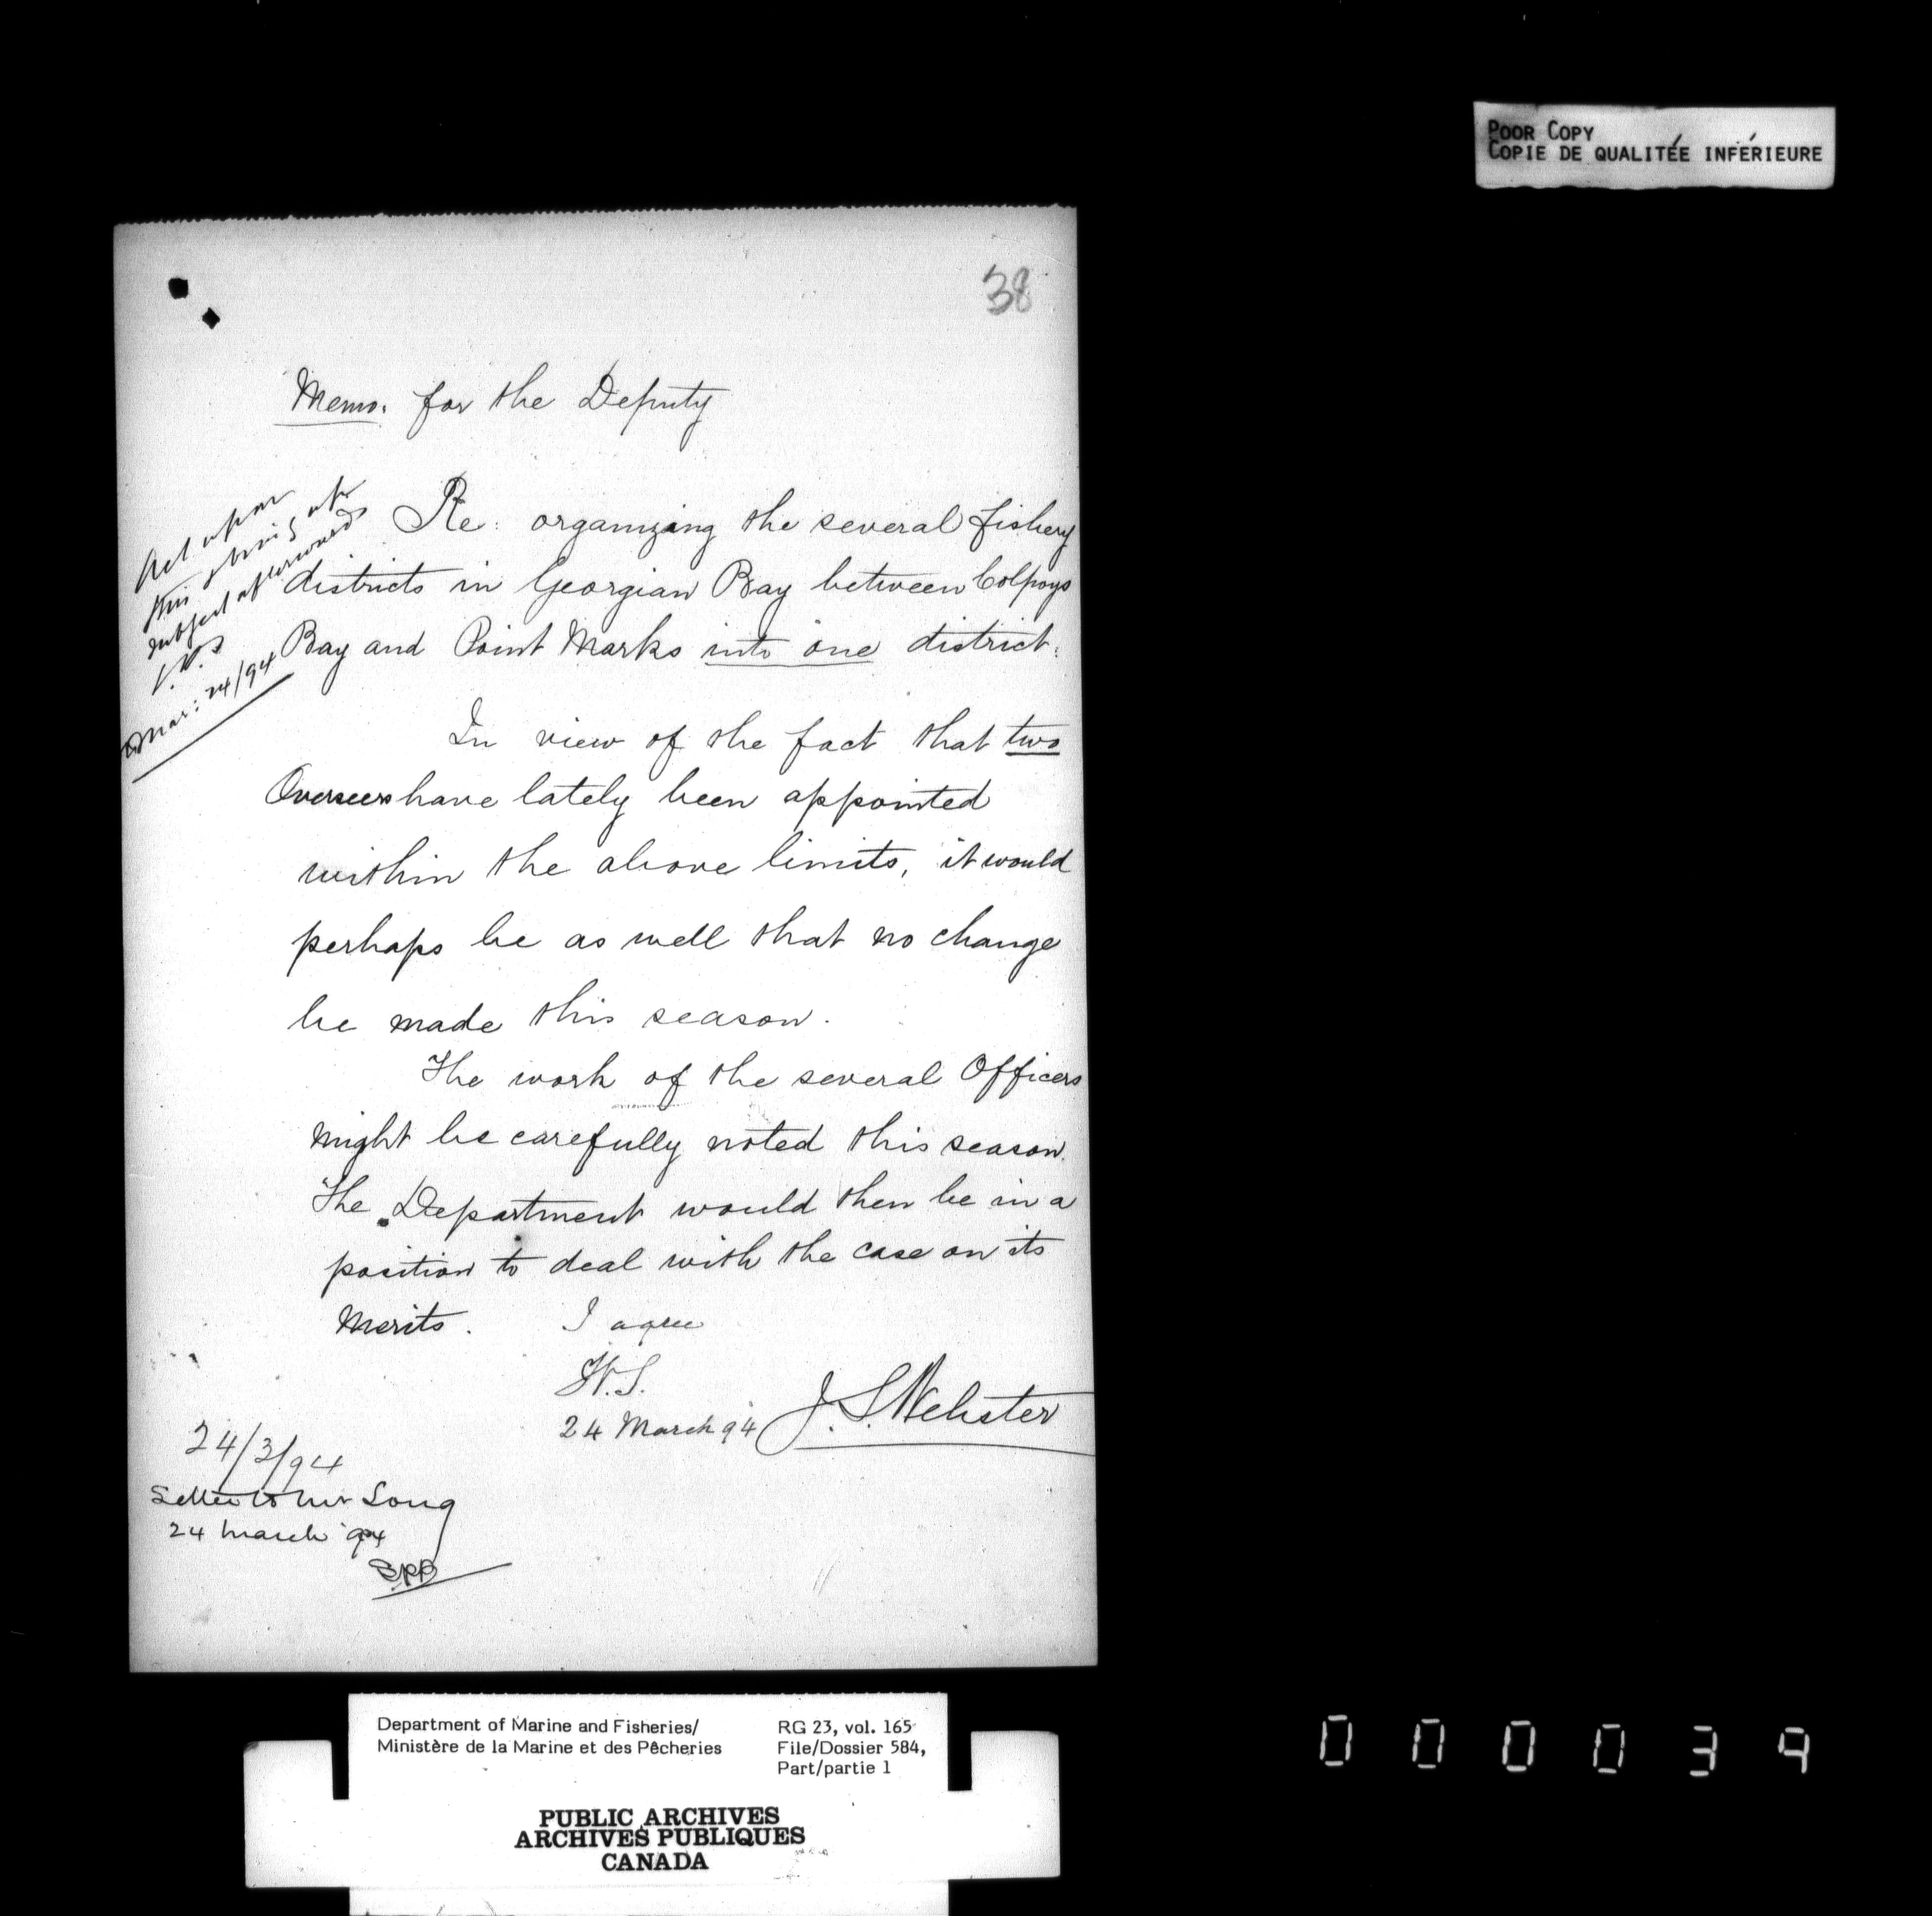 POOR COPY
COPIE DE QUALITÉE INFÉRIEURE
38
Memo. for the Deputy
Act upon
this & bring up
subject afterwards
Mar: 24/94
Re: organizing the several fishery
districts in Georgian Bay between Colpoys
Bay and Point Marks into one district.
In view of the fact that two
Overseers have lately been appointed
within the above limits, it would
perhaps be as well that no change
be made this season.
The work of the several Officers
might be carefully noted this season.
The Department would then be in a
position to deal with the case on its
Merits.
I agree
24 March 94
J. S. Webster
24/3/94
Letter to Mr Long
24 March 94
Department of Marine and Fisheries/
Ministère de la Marine et des Pêcheries
RG 23, vol. 165
File/Dossier 584,
Part/partie 1
PUBLIC ARCHIVES
ARCHIVES PUBLIQUES
CANADA
000039